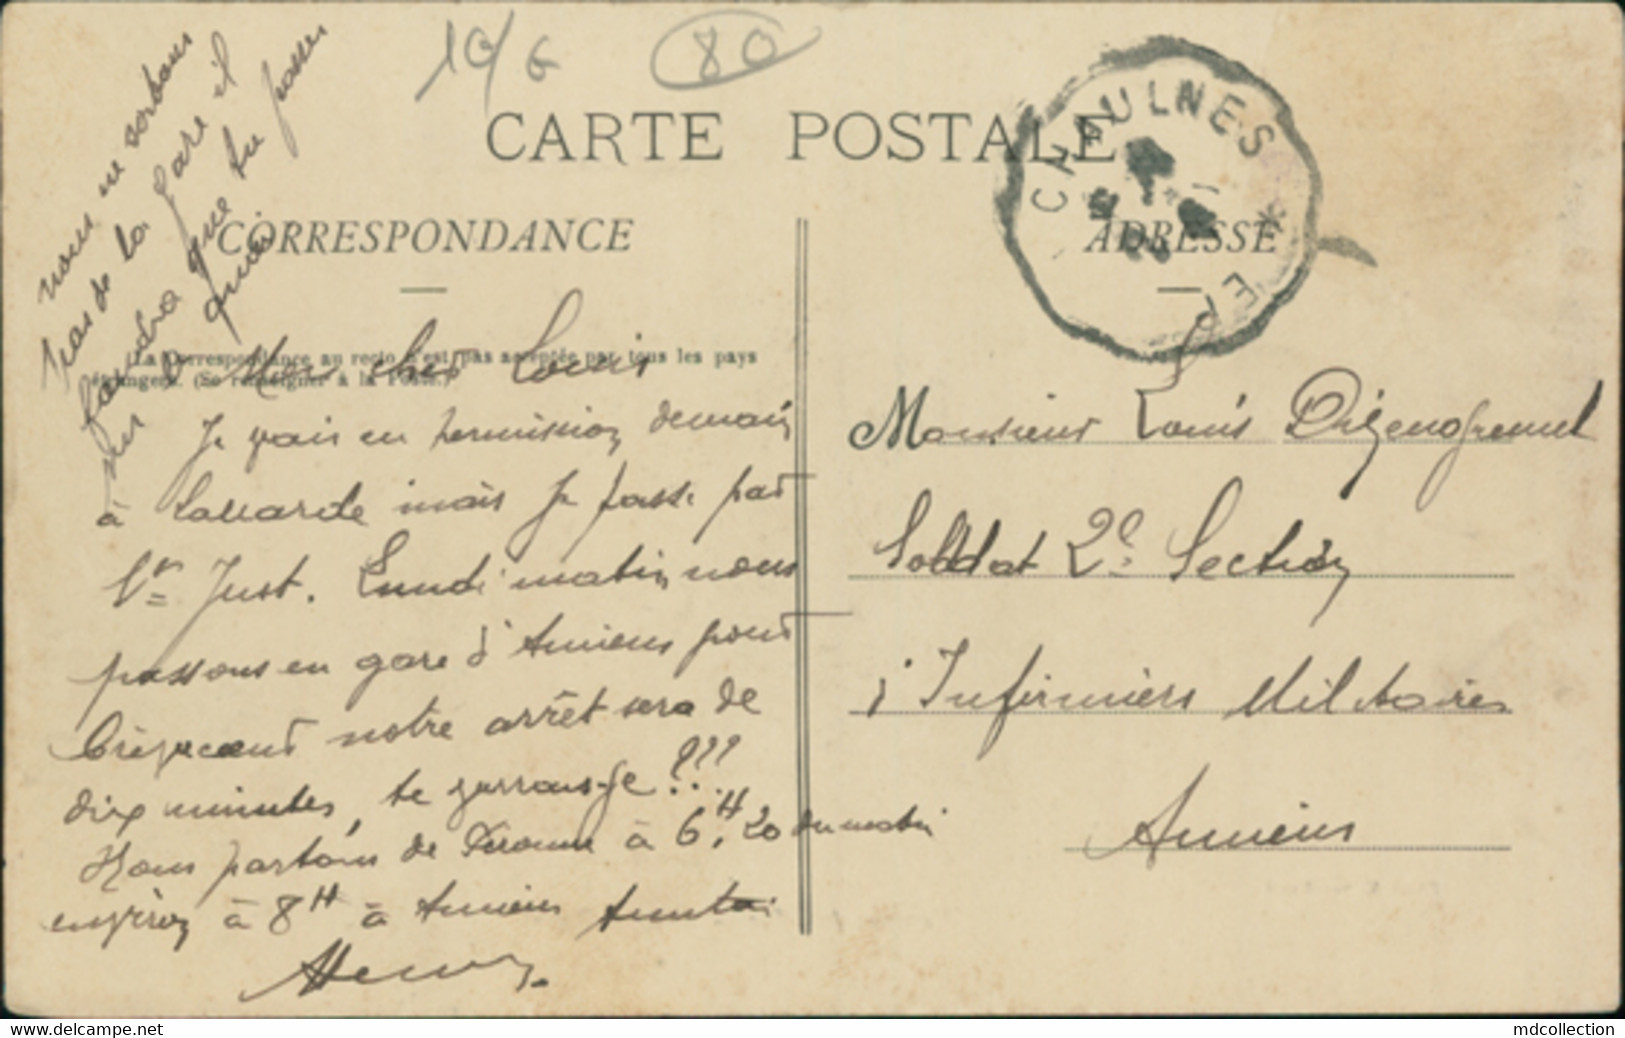 10/6
80
CARTE POSTALE
CHAULNES
EP
CORRESPONDANCE
ADRESSE
La Correspondance au recto n'est pas acceptée par tous les pays
étrangers. (Se renseigner à la Poste.)
nous ne sortons
pas de la gare il
faudra que tu passes
sur quai
Mon cher Louis
Je vais en permission demain
à mais je passe par
St Just. Lundi matin nous
passons en gare d'Amiens pour
Crèvecoeur notre arrêt sera de
dix minutes, te verrous-je ???
Nous partons de Peronne à 6H,20 du matin
environ à 8H à Amiens
Henry.
Monsieur Louis
Soldat 2e Section
Infirmiers Militaires
Amiens
mdcollection